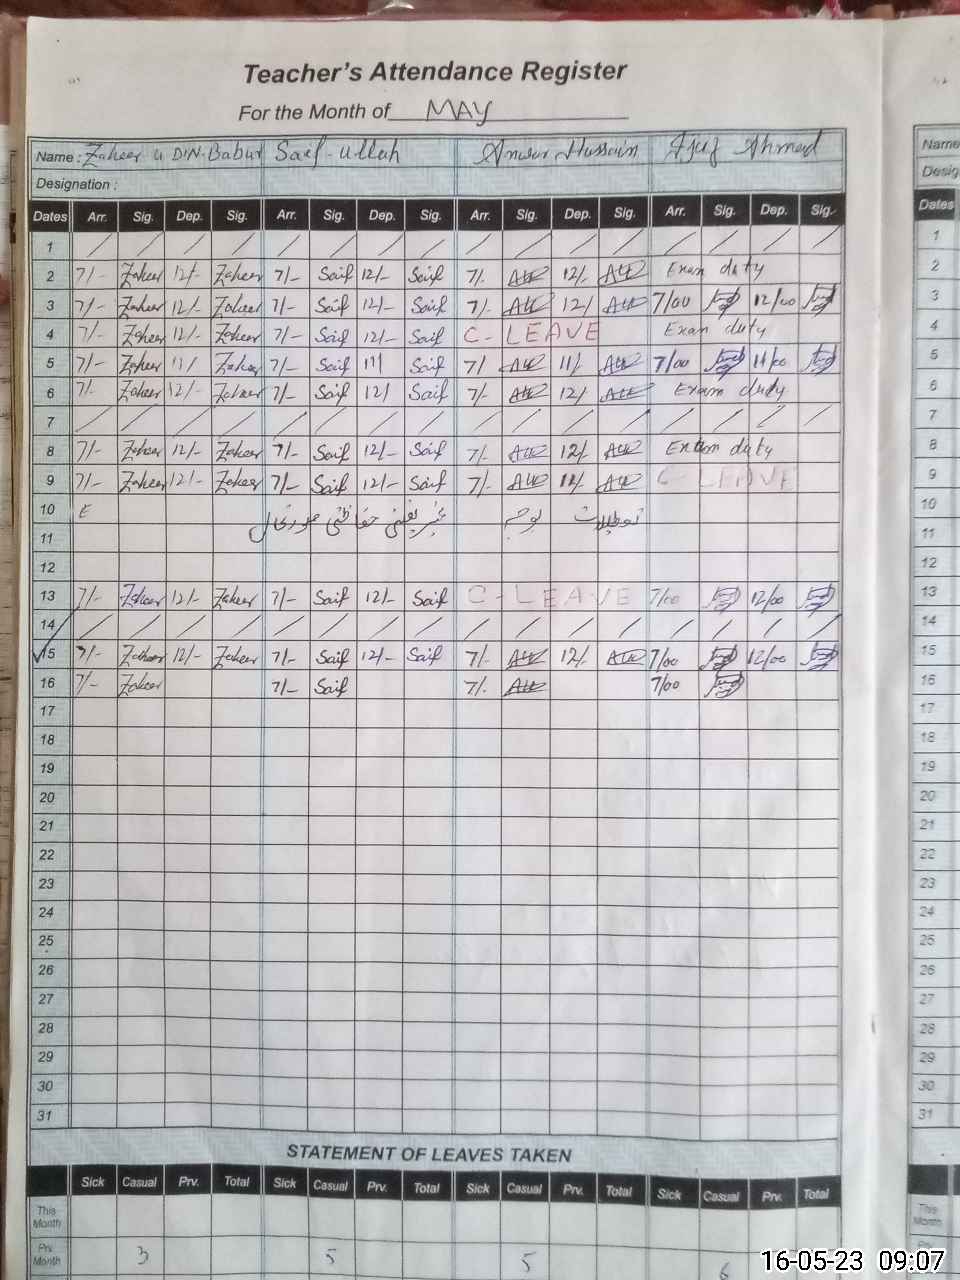 Teacher's Attendance Register
For the Month of MAY
Name : Zaheer u DIN-Babur Saif-ullah Anwar Hussain Ajaz Ahmed
Designation :
Dates Arr. Sig. Dep. Sig. Arr. Sig. Dep. Sig. Arr. Sig. Dep. Sig. Arr. Sig. Dep. Sig.
1 / / / / / / / / / / / / / / / /
2 7/- Zaheer 12/- Zaheer 7/- Saif 12/- Saif 7/. 12/. Exam duty
3 7/- Zaheer 12/- Zaheer 7/- Saif 12/- Saif 7/. 12/ 7/00 12/00
4 7/- Zaheer 12/- Zaheer 7/- Saif 12/- Saif C-LEAVE Exam duty
5 7/- Zaheer 11/ Zaheer 7/- Saif 11/ Saif 7/ 11/. 7/00 11/00
6 7/- Zaheer 12/- Zaheer 7/- Saif 12/ Saif 7/- 12/. Exam duty
7 / / / / / / / / / / / / / / / /
8 7/- Zaheer 12/- Zaheer 7/- Saif 12/- Saif 7/- 12/. Exam duty
9 7/- Zaheer 12/- Zaheer 7/- Saif 12/- Saif 7/- C-LEAVE
10 E
تعطیلات بوجہ غیر یقینی حفاظتی صورتحال
11
12
13 7/- Zaheer 12/- Zaheer 7/- Saif 12/- Saif C-LEAVE 7/00 12/00
14 / / / / / / / / / / / / / / / /
15 7/- Zaheer 12/- Zaheer 7/- Saif 12/- Saif 7/- 12/. 7/00 12/00
16 7/- Zaheer 7/- Saif 7/. 7/00
17
18
19
20
21
22
23
24
25
26
27
28
29
30
31
STATEMENT OF LEAVES TAKEN
Sick Casual Prv. Total Sick Casual Prv. Total Sick Casual Prv. Total Sick Casual Prv. Total
This Month
Prv. Month 3 5 5 6
Name
Desig
Dates
1
2
3
4
5
6
7
8
9
10
11
12
13
14
15
16
17
18
19
20
21
22
23
24
25
26
27
28
29
30
31
This
Month
16-05-23 09:07